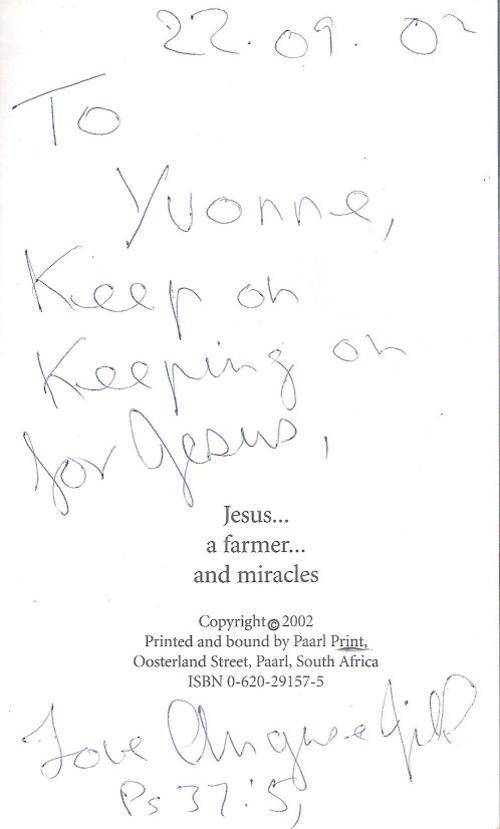 22.09.02
To
Yvonne,
Keep on
Keeping on
for Jesus,
Jesus...
a farmer...
and miracles
Copyright © 2002
Printed and bound by Paarl Print,
Oosterland Street, Paarl, South Africa
ISBN 0-620-29157-5
Love Angus & Jill
Ps 37:5,